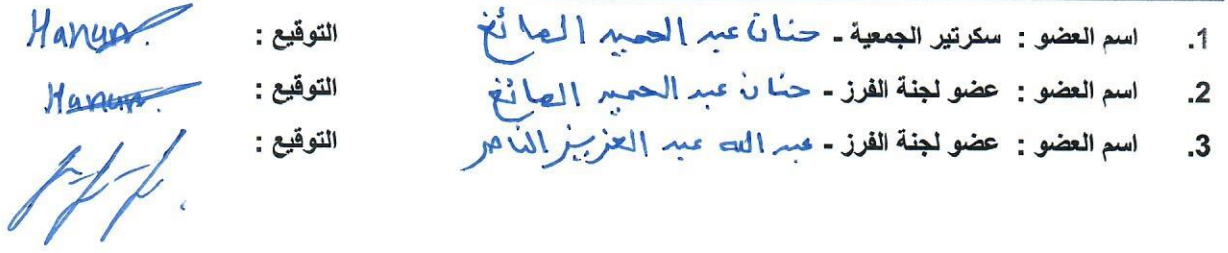 1. اسم العضو : سكرتير الجمعية - حنان عبد الحميد الصائغ التوقيع : Hanan.
2. اسم العضو : عضو لجنة الفرز - حنان عبد الحميد الصائغ التوقيع : Hanan.
3. اسم العضو : عضو لجنة الفرز - عبد الله عبد العزيز الناصر التوقيع :